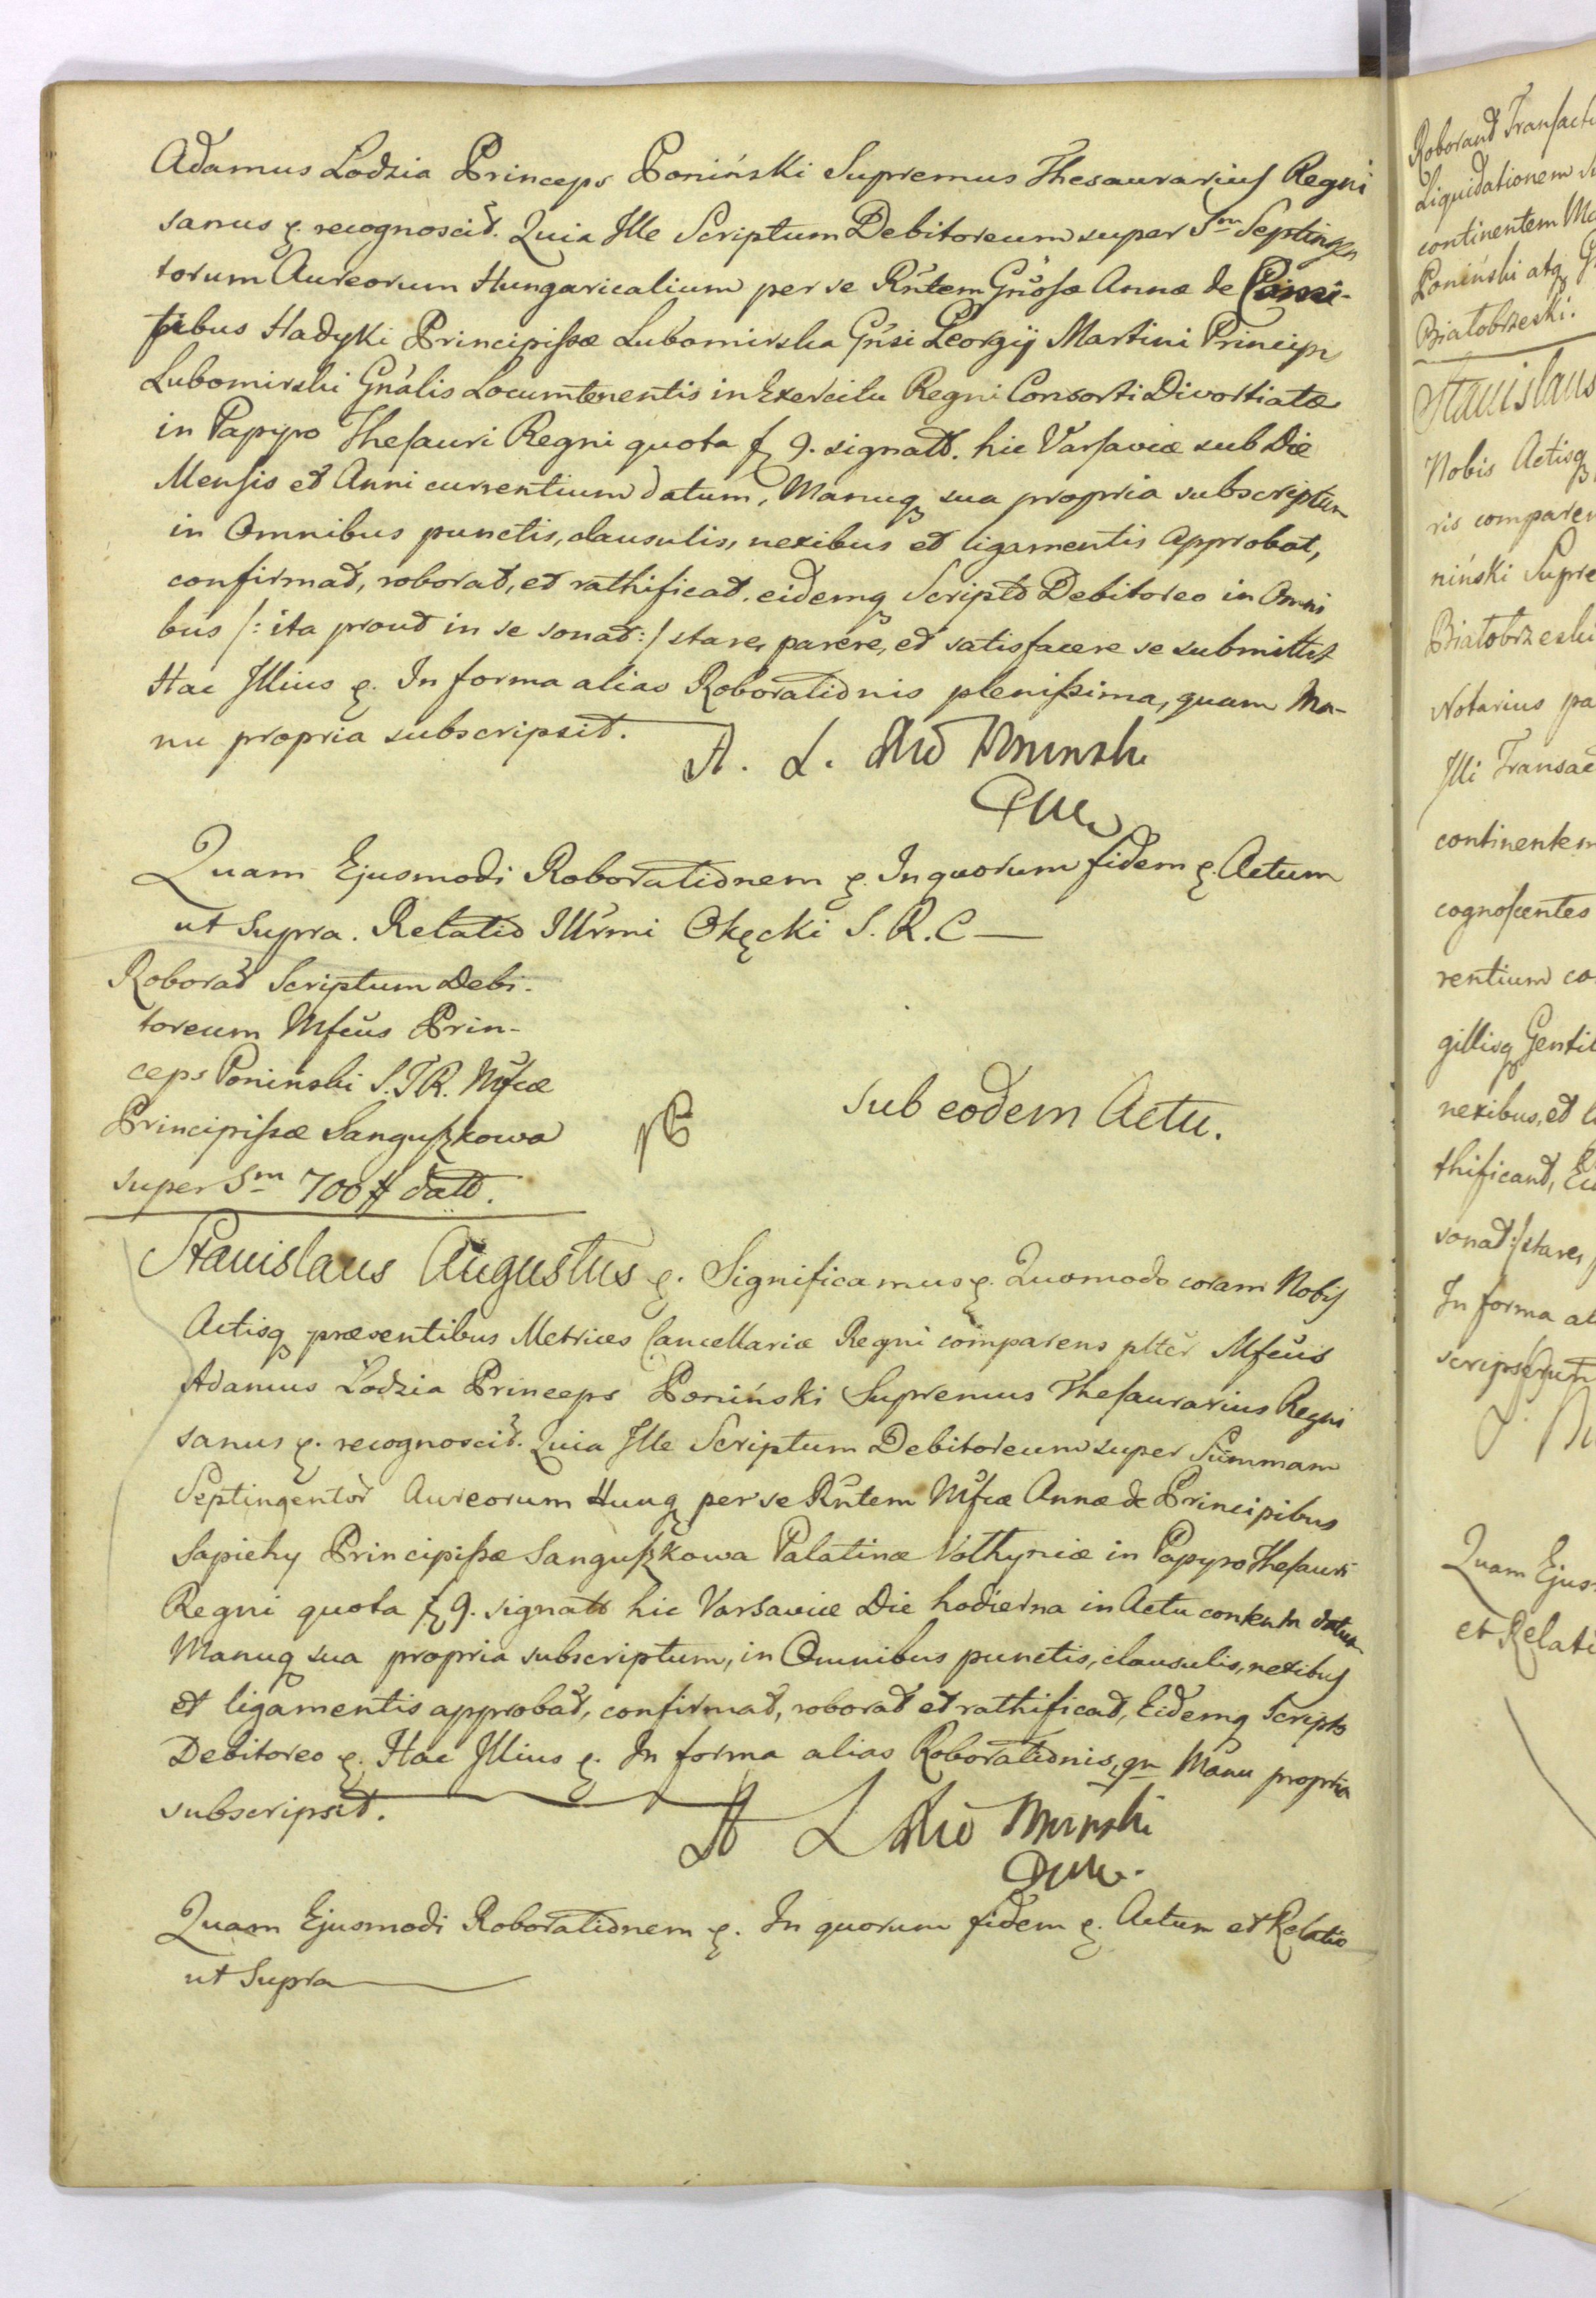 Adamus Lodzia Princeps Poniński Supremus Thesaurarius Regni
sanus &. recognoscit. Quia Ille Scriptum Debitoreum super Sm Septingen
torum Aureorum Hungaricalium per se Rñtem Gñosæ Annæ de Comi-
tibus Hadyki Principißæ Lubomirska Gñsi Georgij Martini Princip
Lubomirski Gnàlis Locumtenentis in Exercitu Regni Consorti Divortiatæ
in Papyro Thesauri Regni quota f 9. signatt. hic Varsaviæ sub Die
Mensis et Anni currentium datum, Manuq sua propria subscriptum
in Omnibus punctis, clausulis, nexibus et ligamentis Approbat,
confirmat, roborat, et rathificat. eidemq Scripto Debitoreo in Omni
bus /: ita prout in se sonat :/ stare, parere, et satisfacere se submittit
Hac Illius &. In forma alias Roborationis plenißima, quam Ma-
nu propria subscripsit.
A. L. Poninski
Quam Ejusmodi Roborationem &. In quorum fidem &. Actum
ut Supra. Relatio Illrmi Okęcki S. R. C
Roborat Scriptum Debi-
toreum Mfcus Prin-
ceps Poniński S. T R. Mfcæ
Principißæ Sanguszkowa
super Sm 700 # datt.
Sub eodem Actu.
Stanislaus Augustus &. Significamus &. Quomodo coram Nobis
Actisq præsentibus Metrices Cancellariæ Regni comparens pltěr Mfcus
Adamus Lodzia Princeps Poniński Supremus Thesaurarius Regni
sanus &. recognoscit. Quia Ille Scriptum Debitoreum super Summam
Septingentor Aureorum Hung per se Rñtem Mfcæ Annæ de Principibus
Sapiehy Principißæ Sanguszkowa Palatinæ Volhyniæ in Papyro Thesauri
Regni quota f 9. signatt hic Varsaviæ Die hodierna in Actu contenta datum
Manuq sua propria subscriptum, in Omnibus punctis, clausulis, nexibus
et ligamentis approbat, confirmat, roborat et rathificat, Eidemq Scripto
Debitoreo &. Hac Illius &. In forma alias Roborationis, qm Manu propria
subscripsit.
A L Poninski
Quam Ejusmodi Roborationem &. In quorum fidem &. Actum et Relatio
ut Supra
Roborant Transacti
Liquidationem
continentem
Poniński atq
Białobrzeski.
Stanislaus
Nobis Actisq
ris comparen
niński Supre
Białobrzeski
Notarius pa
Illi Transac
continentem
cognoscentes
rentium co
gillisq Gentil
nexibus, et l
thificant, Ei
sonat :/ stare,
In forma al
scripserunt
Quam Ejus
et Relati